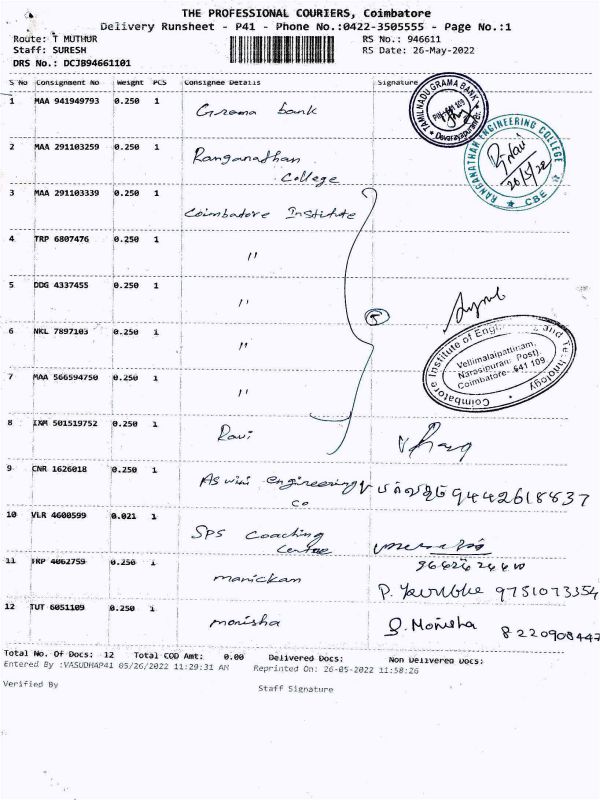 THE PROFESSIONAL COURIERS, Coimbatore
Delivery Runsheet - P41 - Phone No.:0422-3505555 - Page No.:1
Route: T MUTHUR
RS No.: 946611
Staff: SURESH
RS Date: 26-May-2022
DRS No.: DCJB94661101
S No Consignment No Weight PCS Consignee Details Signature
1 MAA 941949793 0.250 1 Grama bank
TAMILNADU GRAMA BANK
Devarayapuram
2 MAA 291103259 0.250 1 Ranganathan
College
RANGANATHAN ENGINEERING COLLEGE
CBE
26/5/22
3 MAA 291103339 0.250 1 Coimbatore Institute
4 TRP 6807476 0.250 1 "
5 DDG 4337455 0.250 1 "
5
6 NKL 7897103 0.250 1 "
Coimbatore Institute of Engg and Technology
Vellimalaipattinam,
Narasipuram Post)
Coimbatore- 641 109
7 MAA 566594750 0.250 1 "
8 IXM 501519752 0.250 1 Ravi
9 CNR 1626018 0.250 1 Aswini engineering 9442618837
co
10 VLR 4600599 0.021 1 SPS Coaching
Centre
11 TRP 4062759 0.250 1 manickam
9751073354
12 TUT 6051109 0.250 1 monisha
Monisha 8220908447
Total No. Of Docs: 12 Total COD Amt: 0.00 Delivered Docs: Non Delivered Docs:
Entered By :VASUDHAP41 05/26/2022 11:29:31 AM Reprinted On: 26-05-2022 11:58:26
Verified By
Staff Signature